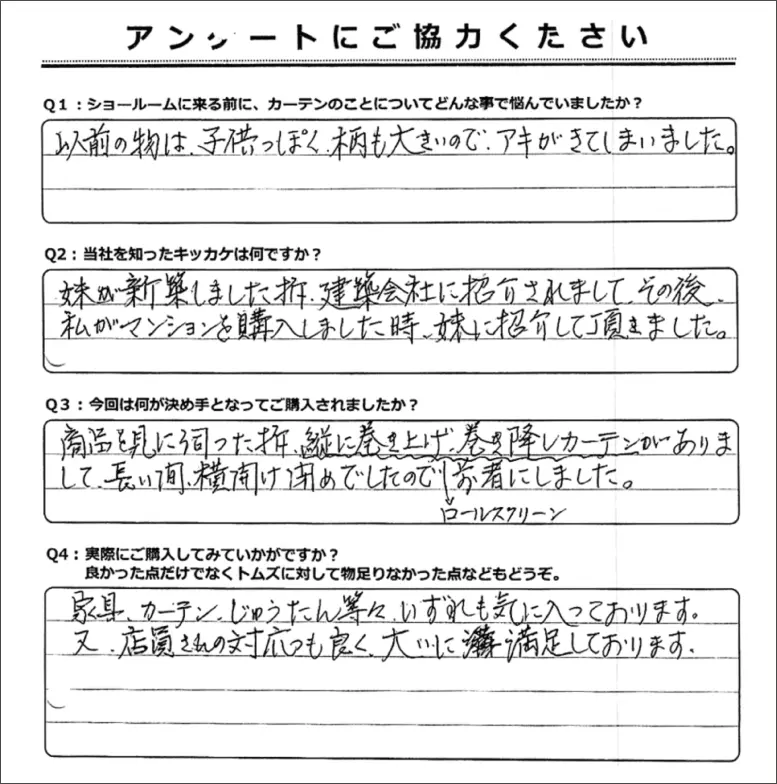 アンケートにご協力ください
Q1：ショールームに来る前に、カーテンのことについてどんな事で悩んでいましたか？
以前の物は、子供っぽく、柄も大きいので、アキがきてしまいました。
Q2：当社を知ったキッカケは何ですか？
妹が新築しました折、建築会社に招介されまして、その後、
私がマンションを購入しました時、妹に招介して頂きました。
Q3：今回は何が決め手となってご購入されましたか？
商品を見に伺った折、縦に巻き上げ、巻き降しカーテンがありま
して、長い間、横開け閉めでしたので前者にしました。
ロールスクリーン
Q4：実際にご購入してみていかがですか？
良かった点だけでなくトムズに対して物足りなかった点などもどうぞ。
家具、カーテン、じゅうたん等々、いずれも気に入っております。
又、店員さんの対応も良く、大いに満足しております。